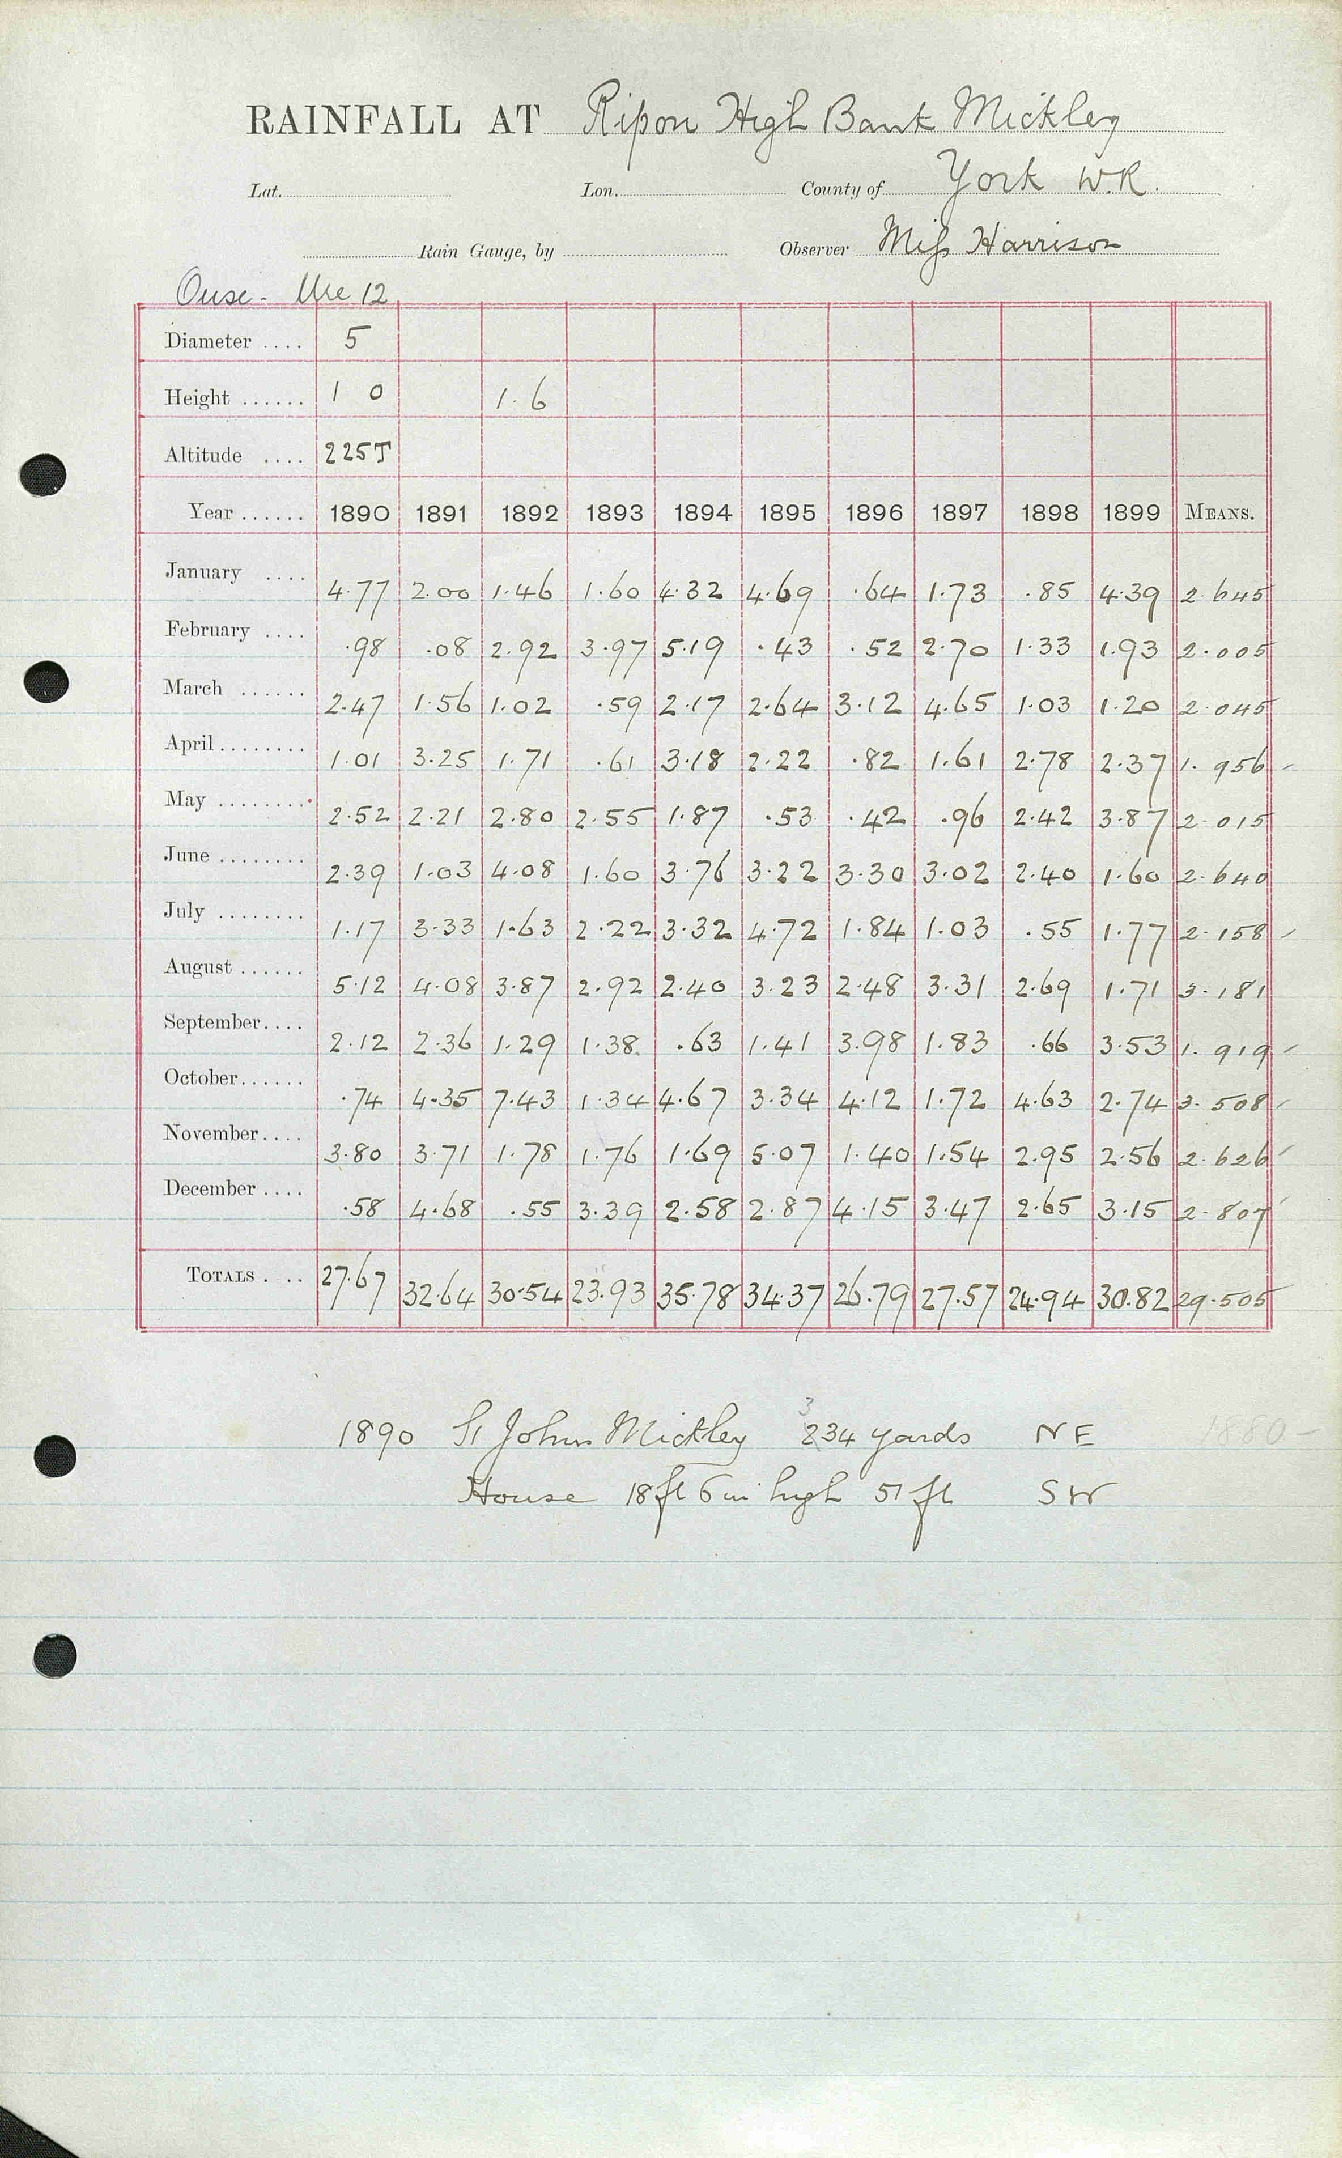 RAINFALL AT Ripon High Bank Mickley
Lat. Lon. County of York W.R.
Rain Gauge, by Observer Miss Harrison
Ouse - Ure 12
Diameter .... 5
Height ...... 1 0 1.6
Altitude .... 225T
Year ...... 1890 1891 1892 1893 1894 1895 1896 1897 1898 1899 MEANS.
January .... 4.77 2.00 1.46 1.60 4.32 4.69 .64 1.73 .85 4.39 2.645
February .... .98 .08 2.92 3.97 5.19 .43 .52 2.70 1.33 1.93 2.005
March ...... 2.47 1.56 1.02 .59 2.17 2.64 3.12 4.65 1.03 1.20 2.045
April ........ 1.01 3.25 1.71 .61 3.18 2.22 .82 1.61 2.78 2.37 1.956
May ........ 2.52 2.21 2.80 2.55 1.87 .53 .42 .96 2.42 3.87 2.015
June ........ 2.39 1.03 4.08 1.60 3.76 3.22 3.30 3.02 2.40 1.60 2.640
July ........ 1.17 3.33 1.63 2.22 3.32 4.72 1.84 1.03 .55 1.77 2.158
August ...... 5.12 4.08 3.87 2.92 2.40 3.23 2.48 3.31 2.69 1.71 3.181
September .... 2.12 2.36 1.29 1.38 .63 1.41 3.98 1.83 .66 3.53 1.919
October ...... .74 4.35 7.43 1.34 4.67 3.34 4.12 1.72 4.63 2.74 3.508
November .... 3.80 3.71 1.78 1.76 1.69 5.07 1.40 1.54 2.95 2.56 2.626
December .... .58 4.68 .55 3.39 2.58 2.87 4.15 3.47 2.65 3.15 2.807
TOTALS .... 27.67 32.64 30.54 23.93 35.78 34.37 26.79 27.57 24.94 30.82 29.505
1890 St John Mickley 234 yards NE 1880 -
House 18ft 6in high 51 ft SW